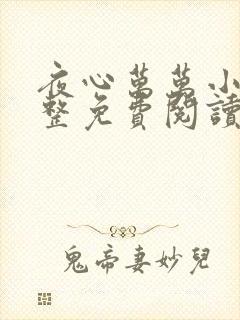 夜心萬萬小
整免費閱讀
鬼帝妻妙兒